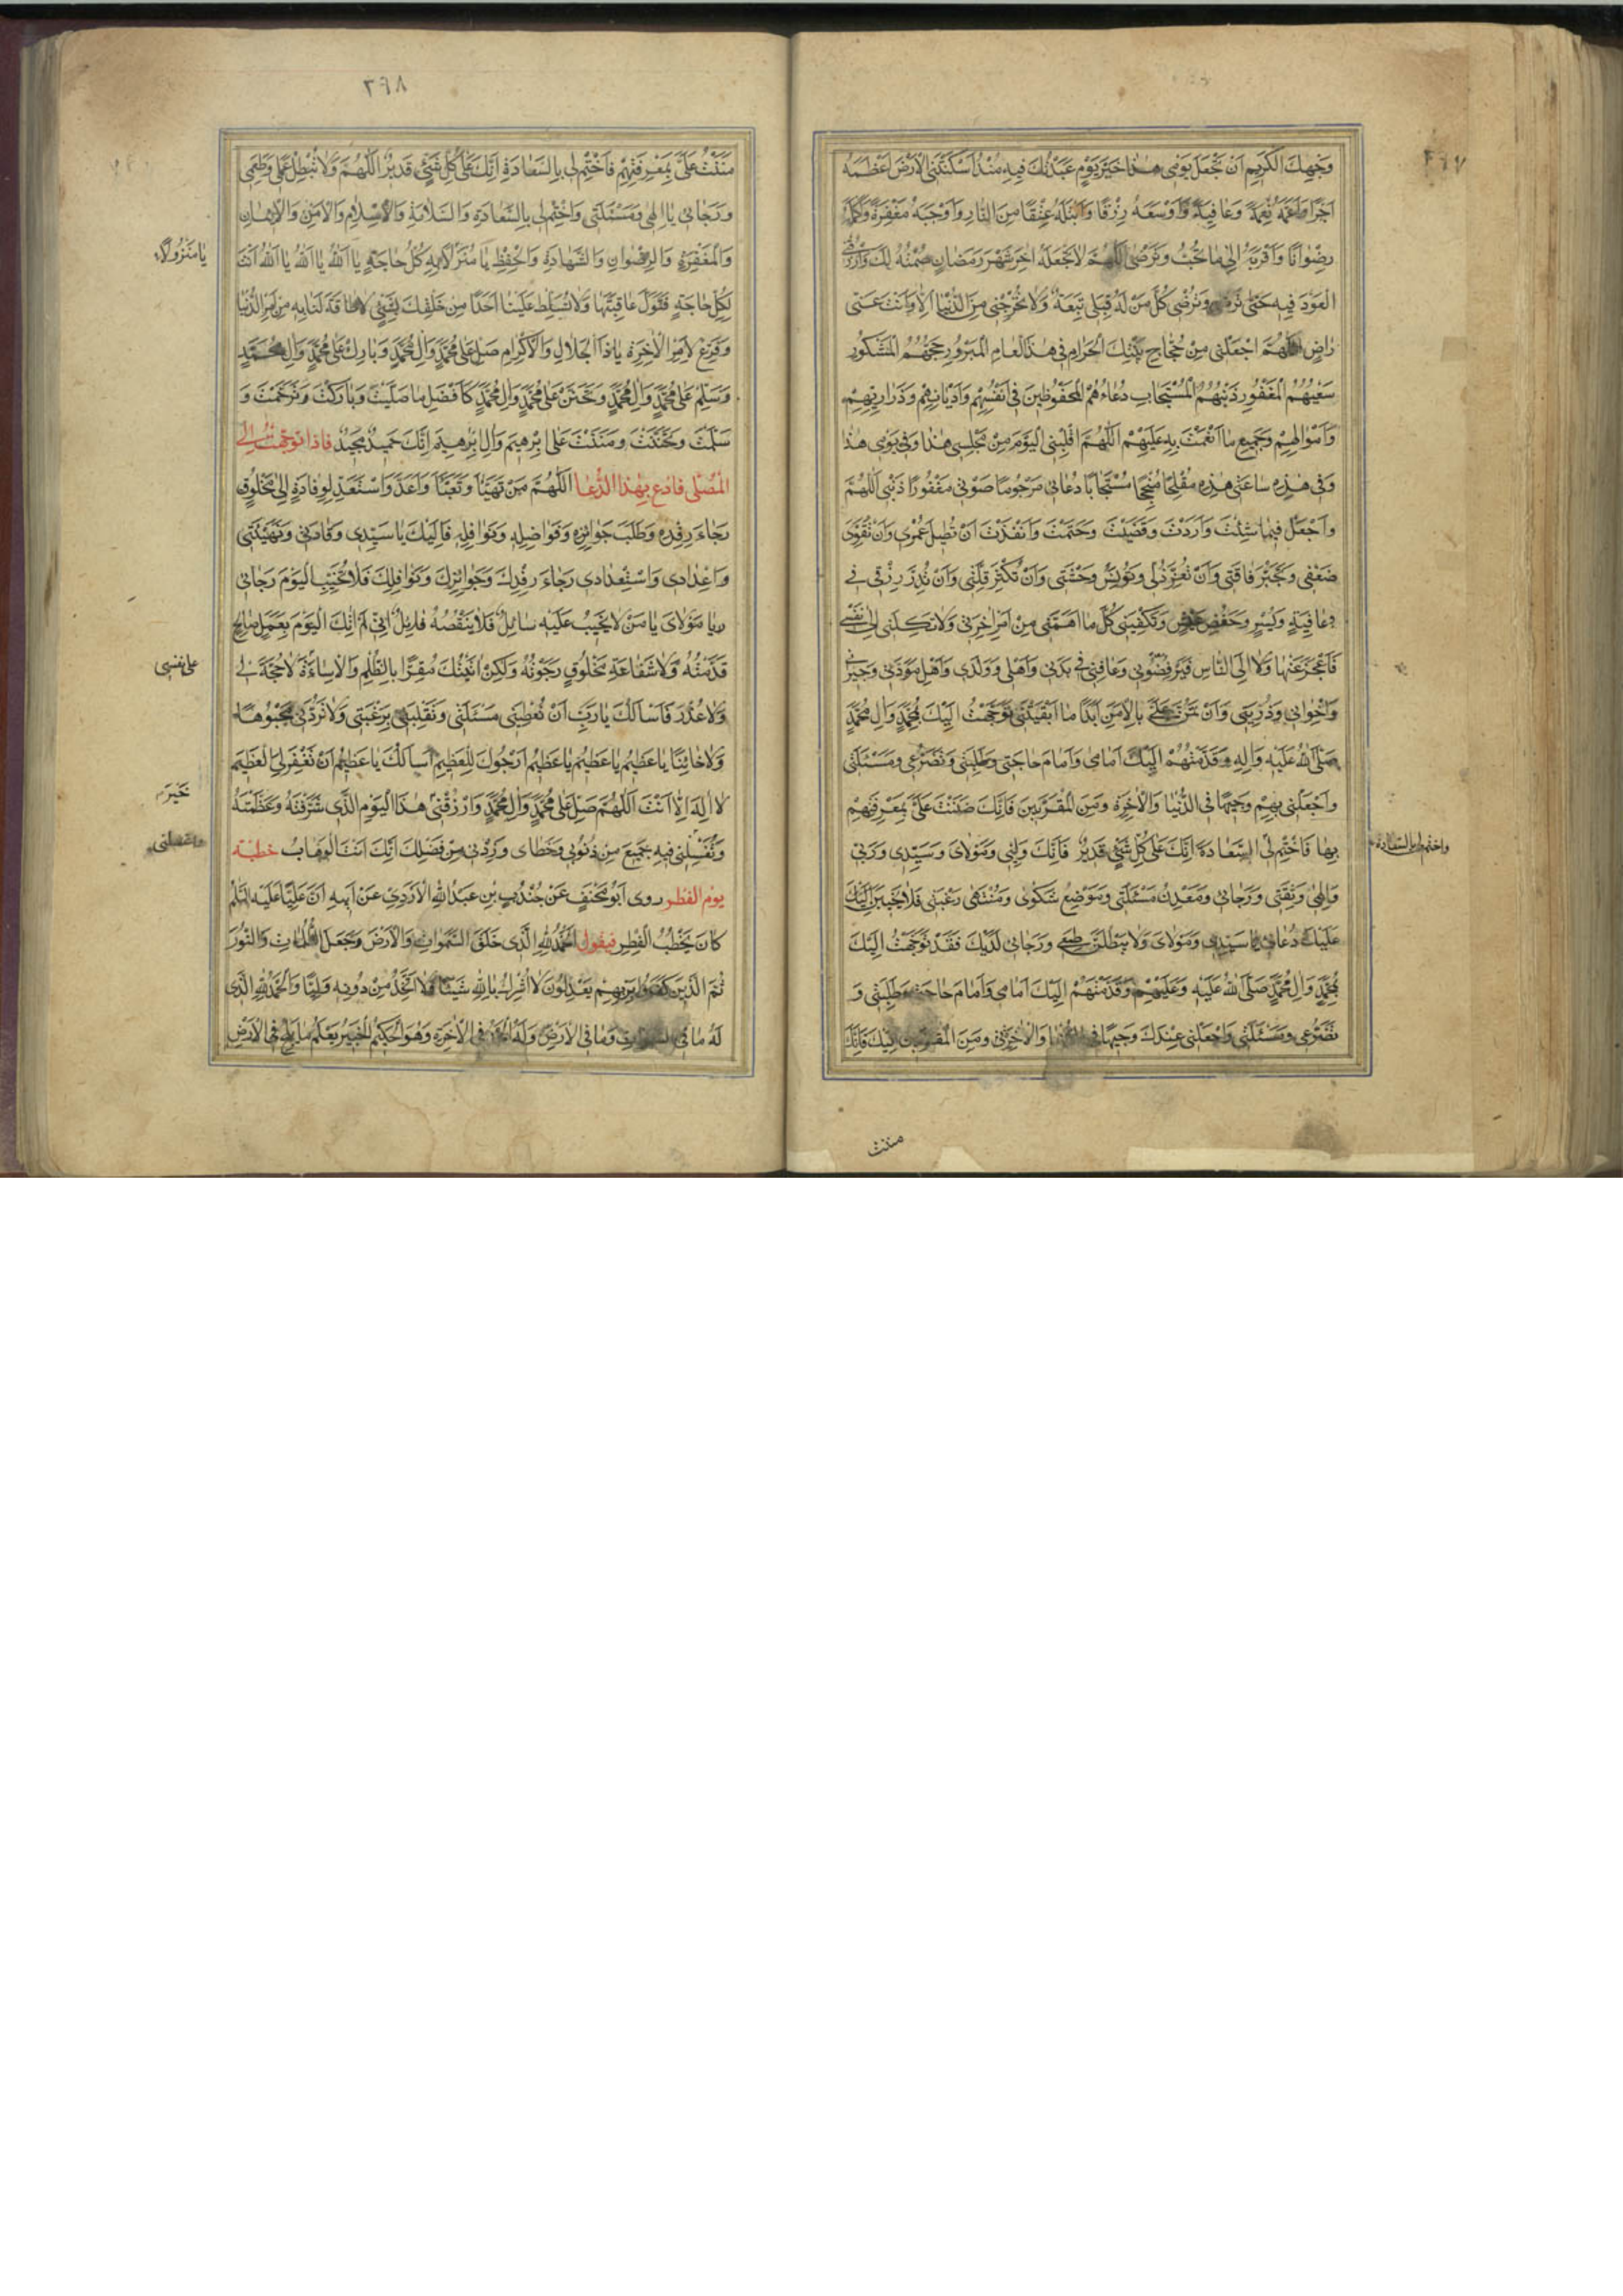 ٣٦٧
وَجْهِكَ الْكَرِيمِ اَنْ تَجْعَلَ يَوْمِى هٰذا خَيْرَ يَوْمٍ عَبَدْتُكَ فِيهِ مُنْذُ اَسْكَنْتَنِى الْاَرْضَ اَعْظَمَهُ
اَجْرًا وَاَعَمَّهُ نِعْمَةً وَعافِيَةً وَاَوْسَعَهُ رِزْقًا وَاَبْتَلَهُ عِتْقًا مِنَ النّارِ وَاَوْجَبَهُ مَغْفِرَةً وَاَكْمَلَهُ
رِضْوانًا وَاَقْرَبَهُ اِلٰى ما تُحِبُّ وَتَرْضٰى اَللّٰهُمَّ لا تَجْعَلْهُ اٰخِرَ شَهْرِ رَمَضانَ صُمْتُهُ لَكَ وَارْزُقْنِى
الْعَوْدَ فِيهِ حَتّٰى تَرْضٰى وَتُرْضِىَ كُلَّ مَنْ لَهُ قِبَلِى تَبِعَةٌ وَلا تُخْرِجْنِى مِنَ الدُّنْيا اِلّا وَاَنْتَ عَنِّى
راضٍ اَللّٰهُمَّ اجْعَلْنِى مِنْ حُجّاجِ بَيْتِكَ الْحَرامِ فِى هٰذَا الْعامِ الْمَبْرُورِ حَجُّهُمُ الْمَشْكُورِ
سَعْيُهُمُ الْمَغْفُورِ ذَنْبُهُمُ الْمُسْتَجابِ دُعاءُهُمُ الْمَحْفُوظِينَ فِى اَنْفُسِهِمْ وَاَدْيانِهِمْ وَذَرارِيهِمْ
وَاَمْوالِهِمْ وَجَمِيعِ ما اَنْعَمْتَ بِهِ عَلَيْهِمْ اَللّٰهُمَّ اقْلِبْنِى الْيَوْمَ مِنْ مَجْلِسِى هٰذا وَفِى يَوْمِى هٰذا
وَفِى هٰذِهِ ساعَتِى هٰذِهِ مُفْلِحًا مُنْجِحًا مُسْتَجابًا دُعائِى مَرْحُومًا صَوْتِى مَغْفُورًا ذَنْبِى اَللّٰهُمَّ
وَاجْعَلْ فِيما شِئْتَ وَاَرَدْتَ وَقَضَيْتَ وَحَتَمْتَ وَاَنْفَذْتَ اَنْ تُطِيلَ عُمْرِى وَاَنْ تُقَوِّىَ
ضَعْفِى وَتَجْبُرَ فاقَتِى وَاَنْ تُعِزَّ ذُلِّى وَتُونِسَ وَحْشَتِى وَاَنْ تُكْثِرَ قِلَّتِى وَاَنْ تُدِرَّ رِزْقِى فِى
عافِيَةٍ وَيُسْرٍ وَخَفْضِ عَيْشٍ وَتَكْفِيَنِى كُلَّ ما اَهَمَّنِى مِنْ اَمْرِ اٰخِرَتِى وَلا تَكِلْنِى اِلٰى نَفْسِى
فَاَعْجِزَ عَنْها وَلا اِلَى النّاسِ فَيَرْفُضُونِى وَعافِنِى فِى بَدَنِى وَاَهْلِى وَوَلَدِى وَاَهْلِ مَوَدَّتِى وَجِيرانِى
وَاِخْوانِى وَذُرِّيَّتِى وَاَنْ تَمُنَّ عَلَىَّ بِالْاَمْنِ اَبَدًا ما اَبْقَيْتَنِى تَوَجَّهْتُ اِلَيْكَ بِمُحَمَّدٍ وَاٰلِ مُحَمَّدٍ
صَلَّى اللهُ عَلَيْهِ وَاٰلِهِ وَقَدَّمْتُهُمْ اِلَيْكَ اَمامِى وَاَمامَ حاجَتِى وَطَلِبَتِى وَتَضَرُّعِى وَمَسْئَلَتِى
وَاجْعَلْنِى بِهِمْ وَجِيهًا فِى الدُّنْيا وَالْاٰخِرَةِ وَمِنَ الْمُقَرَّبِينَ فَاِنَّكَ مَنَنْتَ عَلَىَّ بِمَعْرِفَتِهِمْ
بِها فَاخْتِمْ لِى السَّعادَةَ اِنَّكَ عَلٰى كُلِّ شَىْءٍ قَدِيرٌ فَاِنَّكَ وَلِيِّى وَمَوْلاىَ وَسَيِّدِى وَرَبِّى
واختم لى بالسعادة
وَاِلٰهِى وَثِقَتِى وَرَجائِى وَمَعْدِنُ مَسْئَلَتِى وَمَوْضِعُ شَكْوٰىَ وَمُنْتَهٰى رَغْبَتِى فَلا يَخِيبَنَّ اِلَيْكَ
عَلَيْكَ دُعائِى يا سَيِّدِى وَمَوْلاىَ وَلا يَبْطُلَنَّ طَمَعِى وَرَجائِى لَدَيْكَ فَقَدْ تَوَجَّهْتُ اِلَيْكَ
بِمُحَمَّدٍ وَاٰلِ مُحَمَّدٍ صَلَّى اللهُ عَلَيْهِ وَعَلَيْهِمْ وَقَدَّمْتُهُمْ اِلَيْكَ اَمامِى وَاَمامَ حاجَتِى وَطَلِبَتِى وَ
تَضَرُّعِى وَمَسْئَلَتِى وَاجْعَلْنِى عِنْدَكَ وَجِيهًا فِى الدُّنْيا وَالْاٰخِرَةِ وَمِنَ الْمُقَرَّبِينَ فَاِنَّكَ
مننت
٣٦٨
مَنَنْتَ عَلَىَّ بِمَعْرِفَتِهِمْ فَاخْتِمْ لِى بِالسَّعادَةِ اِنَّكَ عَلٰى كُلِّ شَىْءٍ قَدِيرٌ اَللّٰهُمَّ وَلا تُبْطِلْ عَمَلِى وَطَمَعِى
وَرَجائِى يا اِلٰهِى وَمَسْئَلَتِى وَاخْتِمْ لِى بِالسَّعادَةِ وَالسَّلامَةِ وَالْاِسْلامِ وَالْاَمْنِ وَالْاِيمانِ
وَالْمَغْفِرَةِ وَالرِّضْوانِ وَالشَّهادَةِ وَالْحِفْظِ يا مَنْزُولًا بِهِ كُلُّ حاجَةٍ يا اَللهُ يا اَللهُ يا اَللهُ اَنْتَ
يا مَنْزُولًا
لِكُلِّ حاجَةٍ فَتَوَلَّ عاقِبَتَها وَلا تُسَلِّطْ عَلَيْنا اَحَدًا مِنْ خَلْقِكَ بِشَىْءٍ لا طاقَةَ لَنا بِهِ مِنْ اَمْرِ الدُّنْيا
وَفَرِّغْ لِاَمْرِ الْاٰخِرَةِ يا ذَا الْجَلالِ وَالْاِكْرامِ صَلِّ عَلٰى مُحَمَّدٍ وَاٰلِ مُحَمَّدٍ وَبارِكْ عَلٰى مُحَمَّدٍ وَاٰلِ مُحَمَّدٍ
وَسَلِّمْ عَلٰى مُحَمَّدٍ وَاٰلِ مُحَمَّدٍ وَتَحَنَّنْ عَلٰى مُحَمَّدٍ وَاٰلِ مُحَمَّدٍ كَاَفْضَلِ ما صَلَّيْتَ وَبارَكْتَ وَتَرَحَّمْتَ وَ
سَلَّمْتَ وَتَحَنَّنْتَ وَمَنَنْتَ عَلٰى اِبْرٰهِيمَ وَاٰلِ اِبْرٰهِيمَ اِنَّكَ حَمِيدٌ مَجِيدٌ فاذا توجّهت الى
المصلّى فادع بهذا الدّعا اَللّٰهُمَّ مَنْ تَهَيَّأَ وَتَعَبَّأَ وَاَعَدَّ وَاسْتَعَدَّ لِوِفادَةٍ اِلٰى مَخْلُوقٍ
رَجاءَ رِفْدِهِ وَطَلَبَ جَوائِزِهِ وَفَواضِلِهِ وَنَوافِلِهِ فَاِلَيْكَ يا سَيِّدِى وِفادَتِى وَتَهْيِئَتِى
وَاِعْدادِى وَاسْتِعْدادِى رَجاءَ رِفْدِكَ وَجَوائِزِكَ وَنَوافِلِكَ فَلا تُخَيِّبِ الْيَوْمَ رَجائِى
يا مَوْلاىَ يا مَنْ لا يَخِيبُ عَلَيْهِ سائِلٌ وَلا يَنْقُصُهُ نائِلٌ اِنِّى لَمْ اٰتِكَ الْيَوْمَ بِعَمَلٍ صالِحٍ
قَدَّمْتُهُ وَلا شَفاعَةِ مَخْلُوقٍ رَجَوْتُهُ وَلٰكِنْ اَتَيْتُكَ مُقِرًّا بِالظُّلْمِ وَالْاِساءَةِ لا حُجَّةَ لِى
على نفسى
وَلا عُذْرَ فَاَسْاَلُكَ يا رَبِّ اَنْ تُعْطِيَنِى مَسْئَلَتِى وَتَقْلِبَنِى بِرَغْبَتِى وَلا تَرُدَّنِى مَجْبُوهًا
وَلا خائِبًا يا عَظِيمُ يا عَظِيمُ يا عَظِيمُ اَرْجُوكَ لِلْعَظِيمِ اَسْاَلُكَ يا عَظِيمُ اَنْ تَغْفِرَ لِىَ الْعَظِيمَ
لا اِلٰهَ اِلّا اَنْتَ اَللّٰهُمَّ صَلِّ عَلٰى مُحَمَّدٍ وَاٰلِ مُحَمَّدٍ وَارْزُقْنِى هٰذَا الْيَوْمِ الَّذِى شَرَّفْتَهُ وَعَظَّمْتَهُ
خَيْرَ
وَتَغْسِلْنِى فِيهِ جَمِيعَ مِنْ ذُنُوبِى وَخَطاىَ وَزِدْنِى مِنْ فَضْلِكَ اِنَّكَ اَنْتَ الْوَهّابُ خطبة
يوم الفطر روى اَبُو مِخْنَفٍ عَنْ جُنْدَبِ بْنِ عَبْدِ اللهِ الْاَزْدِىِّ عَنْ اَبِيهِ اَنَّ عَلِيًّا عَلَيْهِ السَّلٰمُ
كانَ يَخْطُبُ الْفِطْرِ فيقول اَلْحَمْدُ لِلّٰهِ الَّذِى خَلَقَ السَّمٰواتِ وَالْاَرْضَ وَجَعَلَ الظُّلُماتِ وَالنُّورَ
ثُمَّ الَّذِينَ كَفَرُوا بِرَبِّهِمْ يَعْدِلُونَ لا اُشْرِكُ بِاللهِ شَيْئًا وَلا اَتَّخِذُ مِنْ دُونِهِ وَلِيًّا وَالْحَمْدُ لِلّٰهِ الَّذِى
لَهُ ما فِى السَّمٰواتِ وَما فِى الْاَرْضِ وَلَهُ الْحَمْدُ فِى الْاٰخِرَةِ وَهُوَ الْحَكِيمُ الْخَبِيرُ يَعْلَمُ ما يَلِجُ فِى الْاَرْضِ